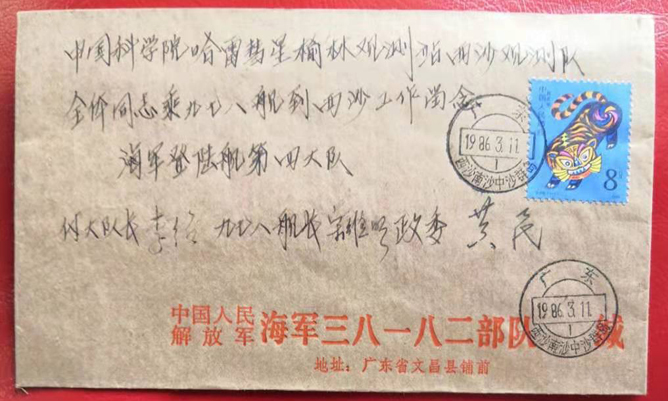 中国科学院哈雷彗星榆林观测站西沙观测队
全体同志乘九七八船到西沙工作留念
海军登陆舰第四大队
付大队长 九七八船长 政委 黄民
中国人民邮政
8分
广东
1986.3.11.
1
西沙南沙中沙群岛
广东
1986.3.11.
1
西沙南沙中沙群岛
中国人民
解放军 海军三八一八二部队 缄
地址：广东省文昌县铺前